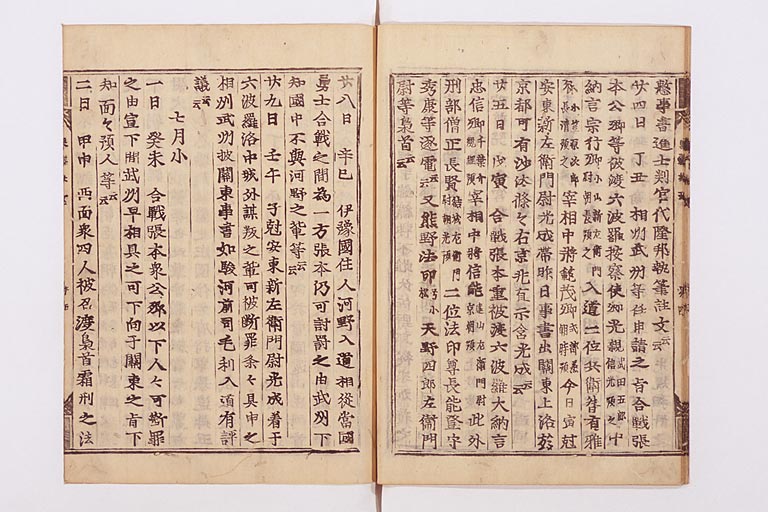 愁事書進士判官代隆邦執筆註文云云
廿四日 丁丑 相州武州等任申請之旨合戰張
本公卿等被渡六波羅按察使卿光親武田五郎信光預之中
納言宗行卿小山新左衛門尉朝長預之入道二位兵衛督有雅
卿小笠原次郎長清預之宰相中將範茂卿式部丞朝時預今日寅尅
安東新左衛門尉光成帶昨日事書出關東上洛於
京都可有沙汰條々右京兆直示含光成云云
廿五日 戊寅 合戰張本重被渡六波羅大納言
忠信卿千葉介胤綱預宰相中將信能遠山左衛門尉景朝預此外
刑部僧正長賢結城左衛門尉朝光預二位法印尊長能登守
秀康等逐電云云又熊野法印号小松天野四郎左衛門
尉等梟首云云
廿八日 辛巳 伊豫國住人河野入道相從當國
勇士合戰之間為一方張本仍可討罸之由武州下
知國中不與河野之輩等云云
廿九日 壬午 子尅安東新左衛門尉光成着于
六波羅洛中城外謀叛之輩可被断罪条々具申之
相州武州披關東事書如駿河前司毛利入道有評
議云云
七月小
一日 癸未 合戰張本衆公卿以下人々可斷罪
之由宣下間武州早相具之可下向于關東之旨下
知面々預人等云云
二日 甲申 西面衆四人被召渡梟首霜刑之法